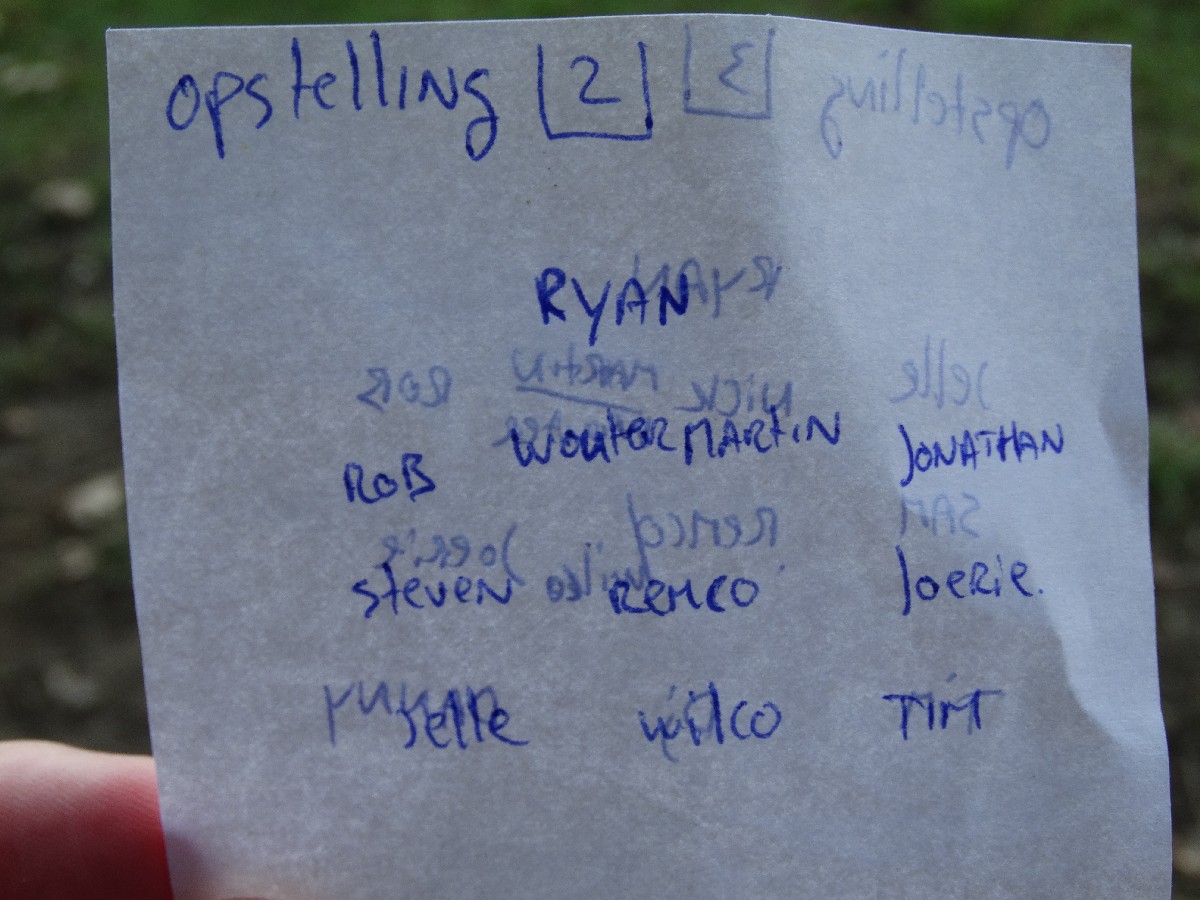 opstelling 2
RYAN
ROB WOUTER MARTIN JONATHAN
STEVEN REMCO JOERIE.
Jelle wilco TIM